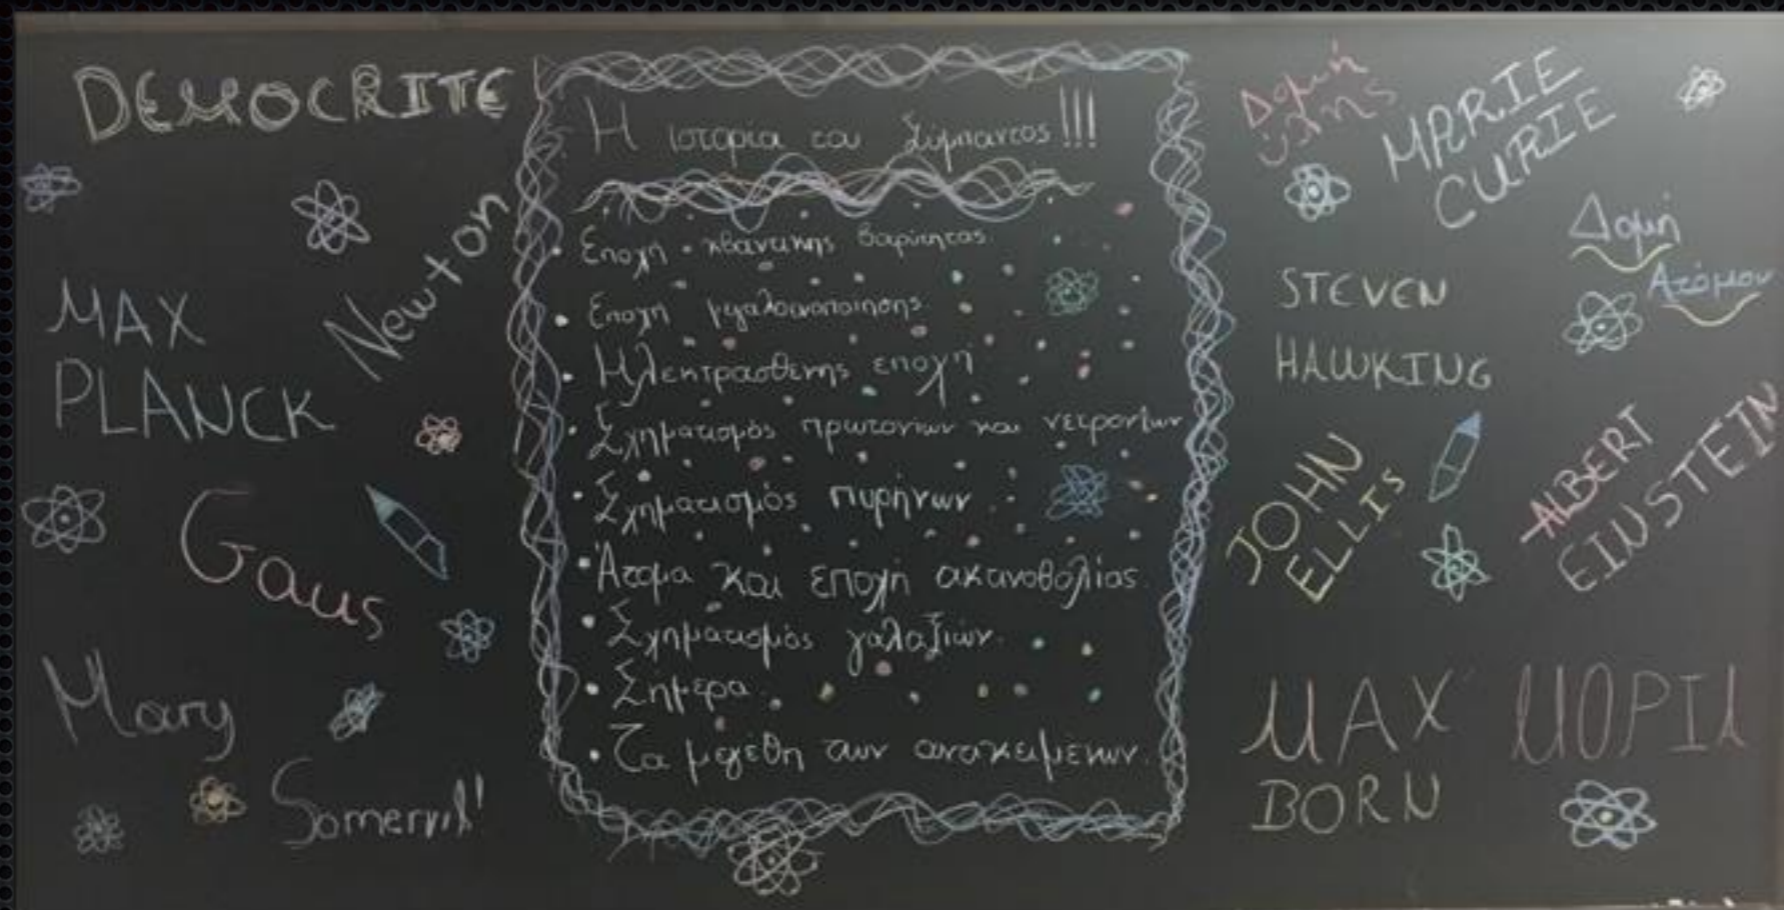 DEMOCRITE
Newton
MAX
PLANCK
Gaus
Mary
Somervil
Η ιστορία του Σύμπαντος!!!
• Εποχή κβαντικής βαρύτητας
• Εποχή μεγαλοενοποίησης
• Ηλεκτρασθενής εποχή
• Σχηματισμός πρωτονίων και νετρονίων
• Σχηματισμός πυρήνων
• Άτομα και εποχή ακτινοβολίας
• Σχηματισμός γαλαξιών
• Σήμερα
• Τα μεγέθη των αντικειμένων
Δομή
ύλης
MARIE
CURIE
Δομή
Ατόμου
STEVEN
HAWKING
JOHN
ELLIS
ALBERT
EINSTEIN
MAX
BORN
ΜΟΡΙΑ